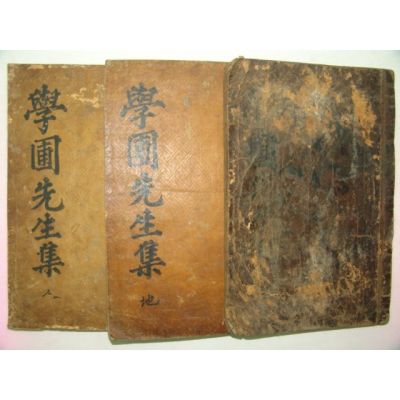 學圃先生集
人
學圃先生集
地